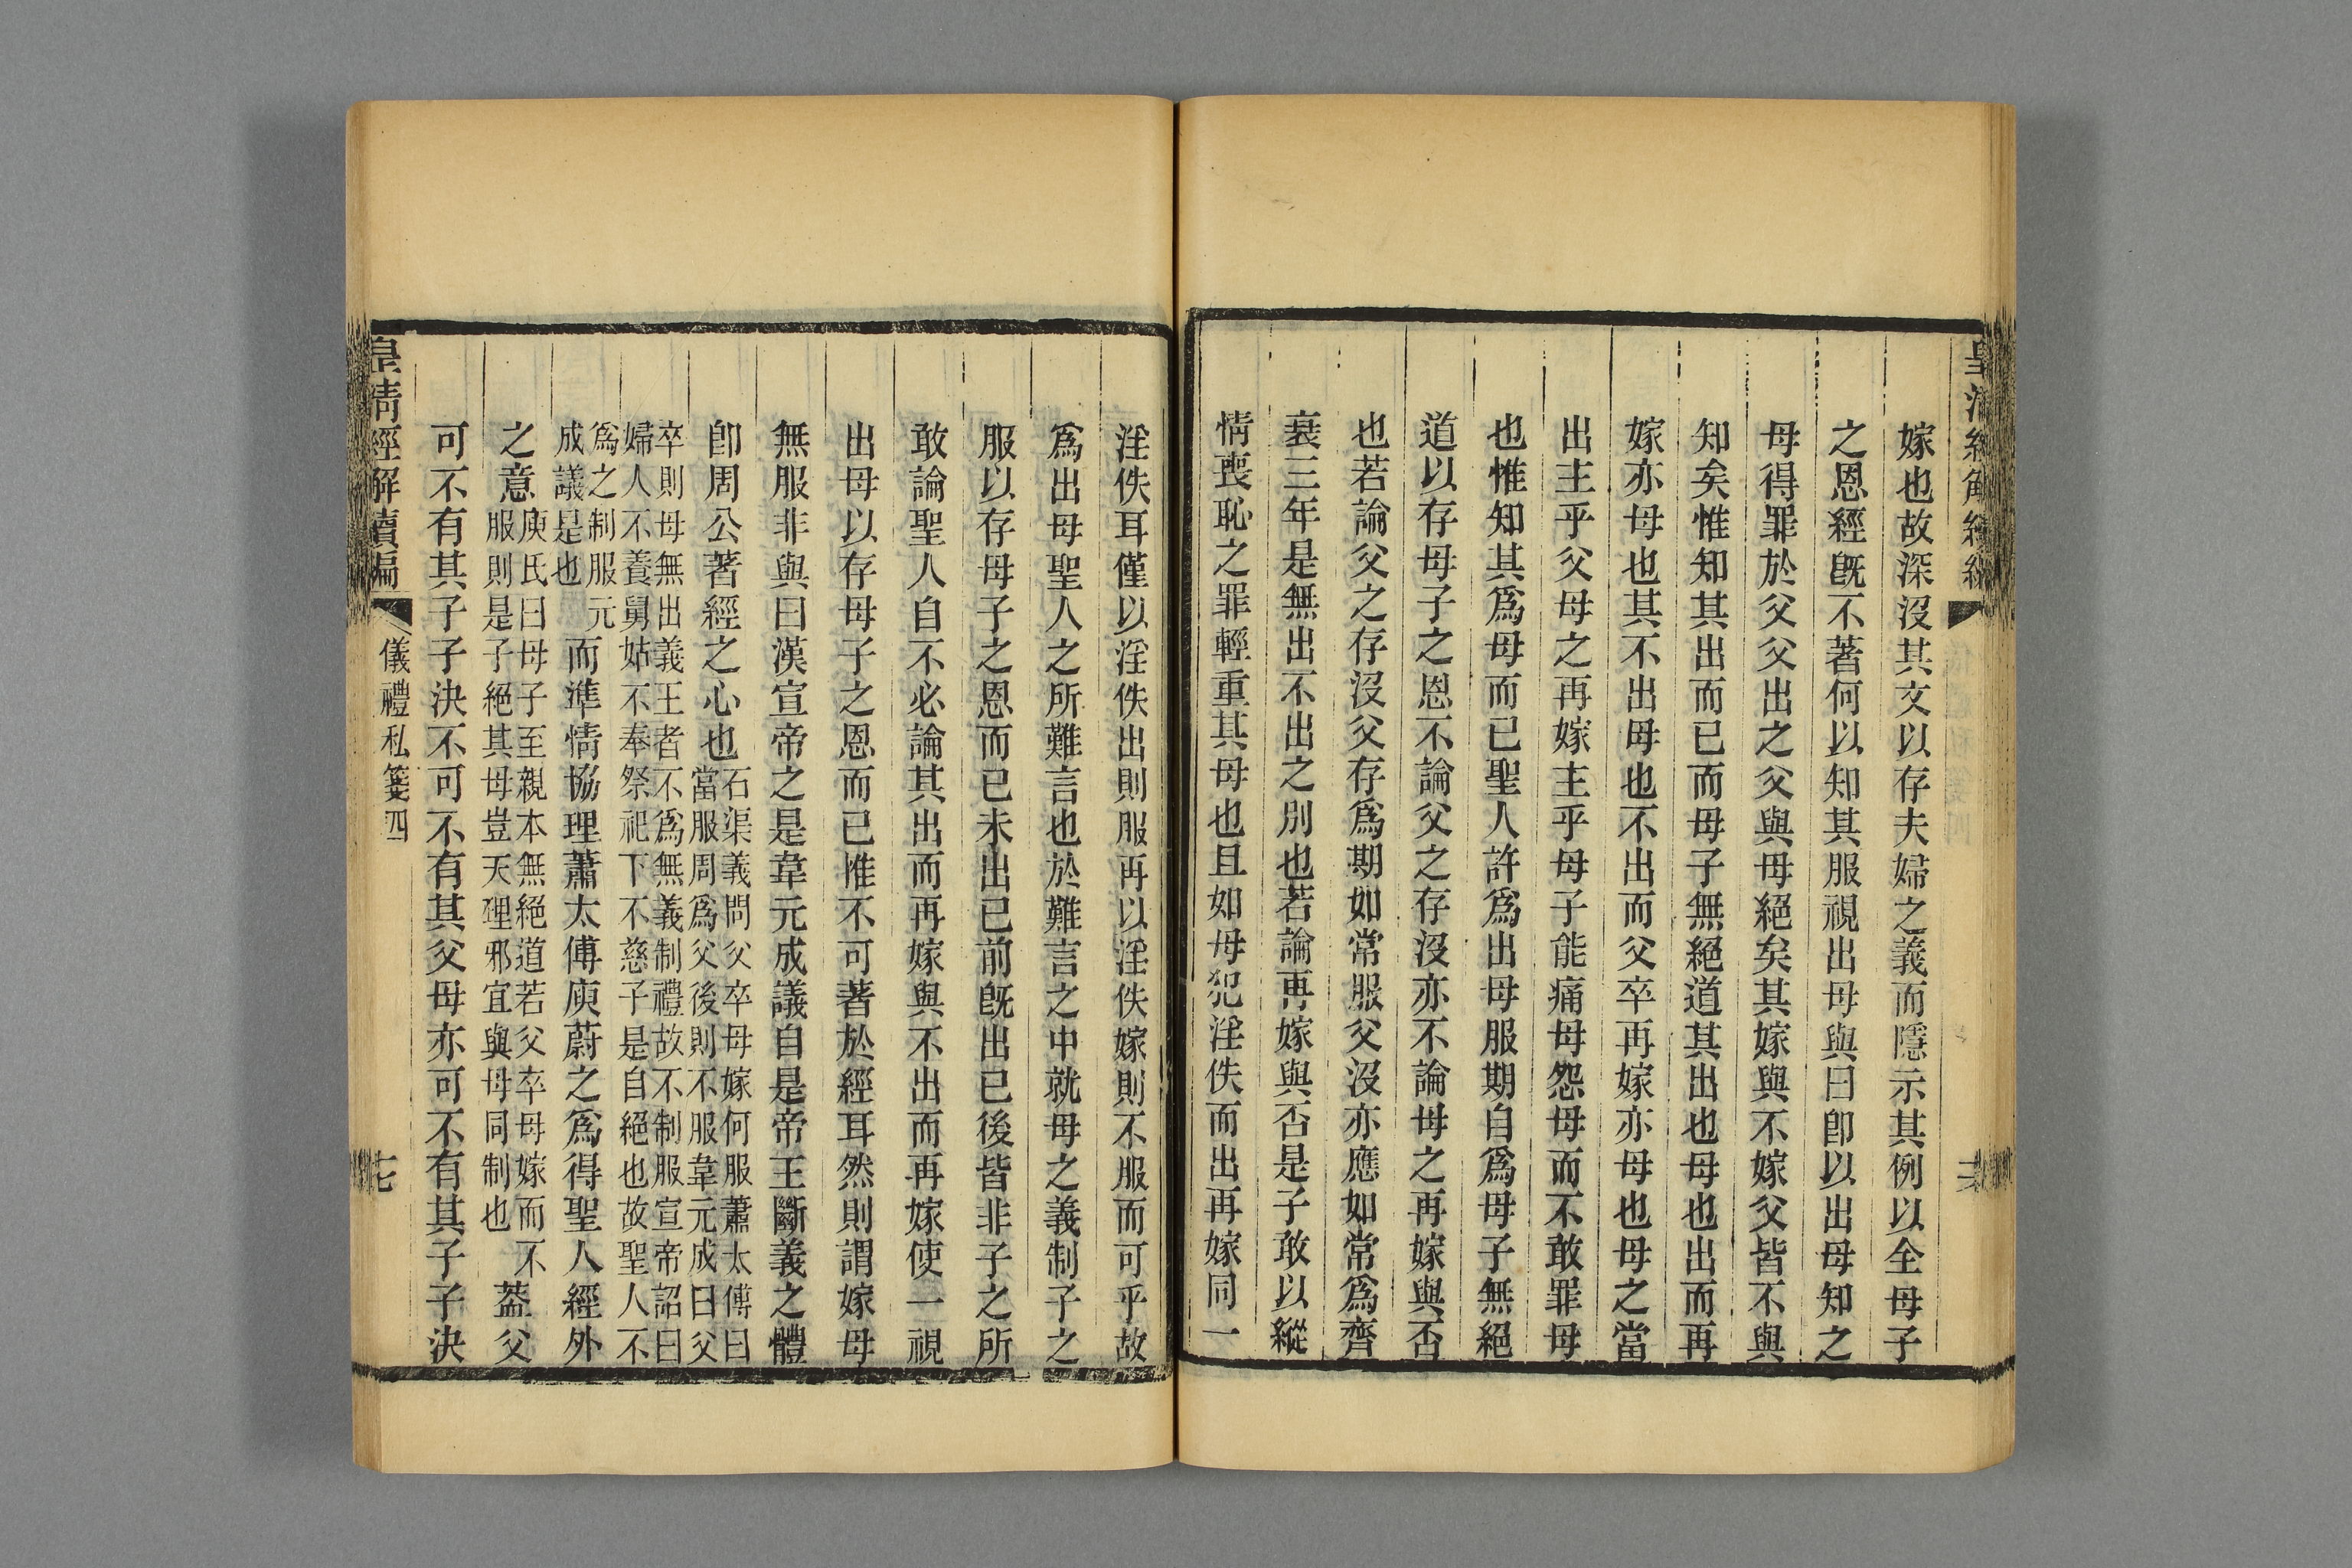 嫁也故深沒其文以存夫婦之義而隱示其例以全母子
之恩經旣不著何以知其服視出母與曰卽以出母知之
母得罪於父父出之父與母絕矣其嫁與不嫁父皆不與
知矣惟知其出而已而母子無絕道其出也母也出而再
嫁亦母也其不出母也不出而父卒再嫁亦母也母之當
出主乎父母之再嫁主乎母子能痛母怨母而不敢罪母
也惟知其爲母而已聖人許爲出母服期自爲母子無絕
道以存母子之恩不論父之存沒亦不論母之再嫁與否
也若論父之存沒父存爲期如常服父沒亦應如常爲齊
衰三年是無出不出之別也若論再嫁與否是子敢以縱
情喪恥之罪輕重其母也且如母犯淫佚而出再嫁同一
淫佚耳僅以淫佚出則服再以淫佚嫁則不服而可乎故
爲出母聖人之所難言也於難言之中就母之義制子之
服以存母子之恩而已未出已前旣出已後皆非子之所
敢論聖人自不必論其出而再嫁與不出而再嫁使一視
出母以存母子之恩而已惟不可著於經耳然則謂嫁母
無服非與曰漢宣帝之是韋元成議自是帝王斷義之體
卽周公著經之心也石渠義問父卒母嫁何服蕭太傅曰
當服周爲父後則不服韋元成曰父
卒則母無出義王者不爲無義制禮故不制服宣帝詔曰
婦人不養舅姑不奉祭祀下不慈子是自絕也故聖人不
爲之制服元
成議是也
而準情協理蕭太傅庾蔚之爲得聖人經外
之意
庾氏曰母子至親本無絕道若父卒母嫁而不
服則是子絕其母豈天理邪宜與母同制也
蓋父
可不有其子子決不可不有其父母亦可不有其子子決
皇清經解續編
儀禮私箋四